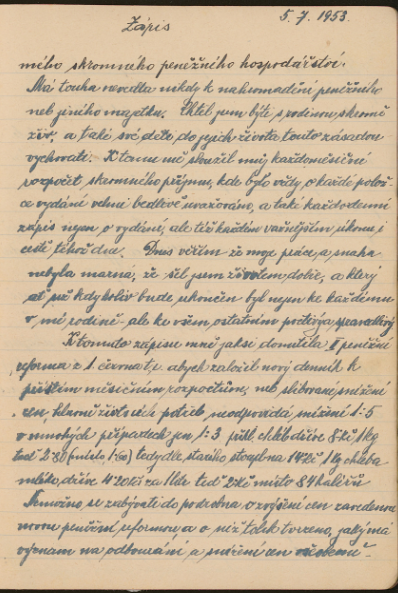 5. 7. 1953.
Zápis
mého skromného peněžného hospodářství.
Má touha nevedla nikdy k nahromadění peněžního
neb jiného majetku. Chtěl jsem býti s rodinou skromě
živ, a také své děti do jejich života touto zásadou
vychovati. K tomu mě sloužil můj každoměsíční
rozpočet skromného příjmu, kde bylo vždy o každé polož-
ce vydání velmi bedlivě uvažováno, a také každodenní
zápis nejen o vydání, ale též každém važnějším úkonu i
cestě téhož dne. Dnes věřím že moje práce a snaha
nebyla marná, že šel jsem životem dobře, a který
ať už kdykoliv bude ukončen byl nejen ke každému
v mé rodině - ale ke všem ostatním poctivý a spravedlivý
K tomuto zápisu mně jaksi donutila peněžní
reforma z 1. června t.r. abych založil nový denník k
příštím měsíčním rozpočtům, neb slibované snížení
cen, hlavně životních potřeb, neodpovídá snížení 1:5
v mnohých případech jen 1:3 chléb dříve 8 Kč 1 kg
teď 2·80 (místo 1·60) tedy dle starého stoupl na 14 Kč 1 kg chleba
mléko dříve 4·20 Kč za 1 litr teď 2 Kč místo 84 haléřů
Nemožno se zabývati do podrobna o zvýšení cen zavedenou
novou peněžní reformou, a o níž tolik tvrzeno, jaký má
význam na odbourání a snížení cen